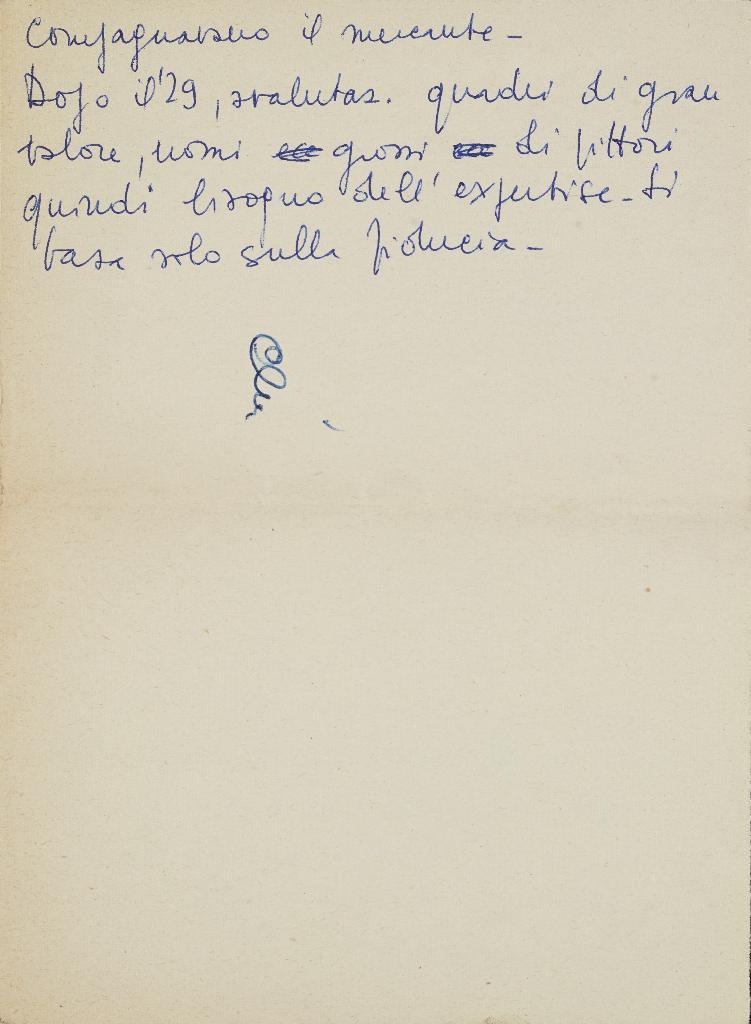 compagnavano il mercante -
Dopo il '29, svalutaz. quadri di gran
valore, nomi grossi di pittori
quindi bisogno dell'expertise - si
basa solo sulla fiducia -